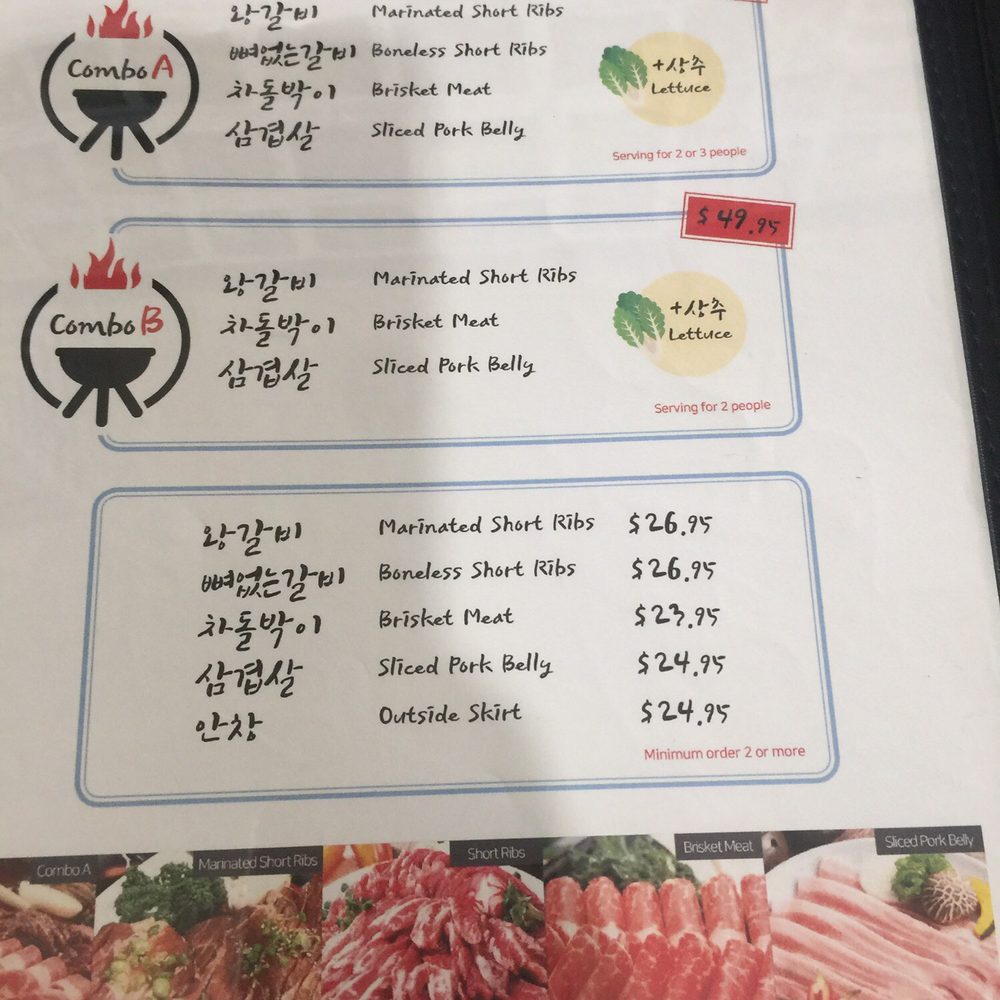 왕갈비 Marinated Short Ribs
Combo A
뼈없는갈비 Boneless Short Ribs
차돌박이 Brisket Meat
삼겹살 Sliced Pork Belly
+상추
Lettuce
Serving for 2 or 3 people
$49.95
Combo B
왕갈비 Marinated Short Ribs
차돌박이 Brisket Meat
삼겹살 Sliced Pork Belly
+상추
Lettuce
Serving for 2 people
왕갈비 Marinated Short Ribs $26.95
뼈없는갈비 Boneless Short Ribs $26.95
차돌박이 Brisket Meat $23.95
삼겹살 Sliced Pork Belly $24.95
안창 Outside Skirt $24.95
Minimum order 2 or more
Combo A
Marinated Short Ribs
Short Ribs
Brisket Meat
Sliced Pork Belly